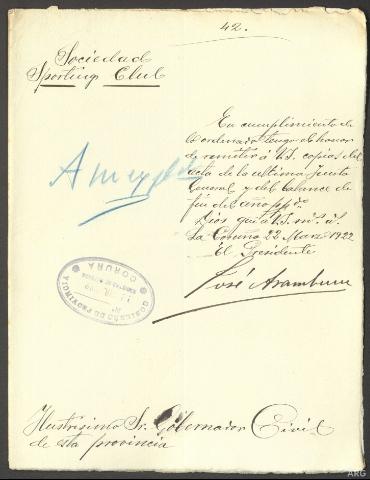 42.
Sociedad
Sporting Club
En cumplimiento de
lo ordenado tengo el honor
de remitir á V.S. copias del
acta de la última Junta
General y del balance de
fin del año ppdº.
Dios gu. á V.S. ms. as.
La Coruña 22 Marzo 1922
El Presidente
José Aramburu
GOBIERNO DE PROVINCIA
CORUÑA
Ilustrisimo Sr. Gobernador Civil
de esta provincia
ARG